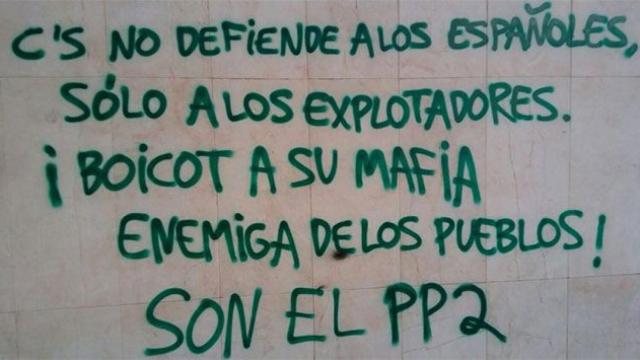 C'S NO DEFIENDE A LOS ESPAÑOLES,
SÓLO A LOS EXPLOTADORES.
¡BOICOT A SU MAFIA
ENEMIGA DE LOS PUEBLOS!
SON EL PP2